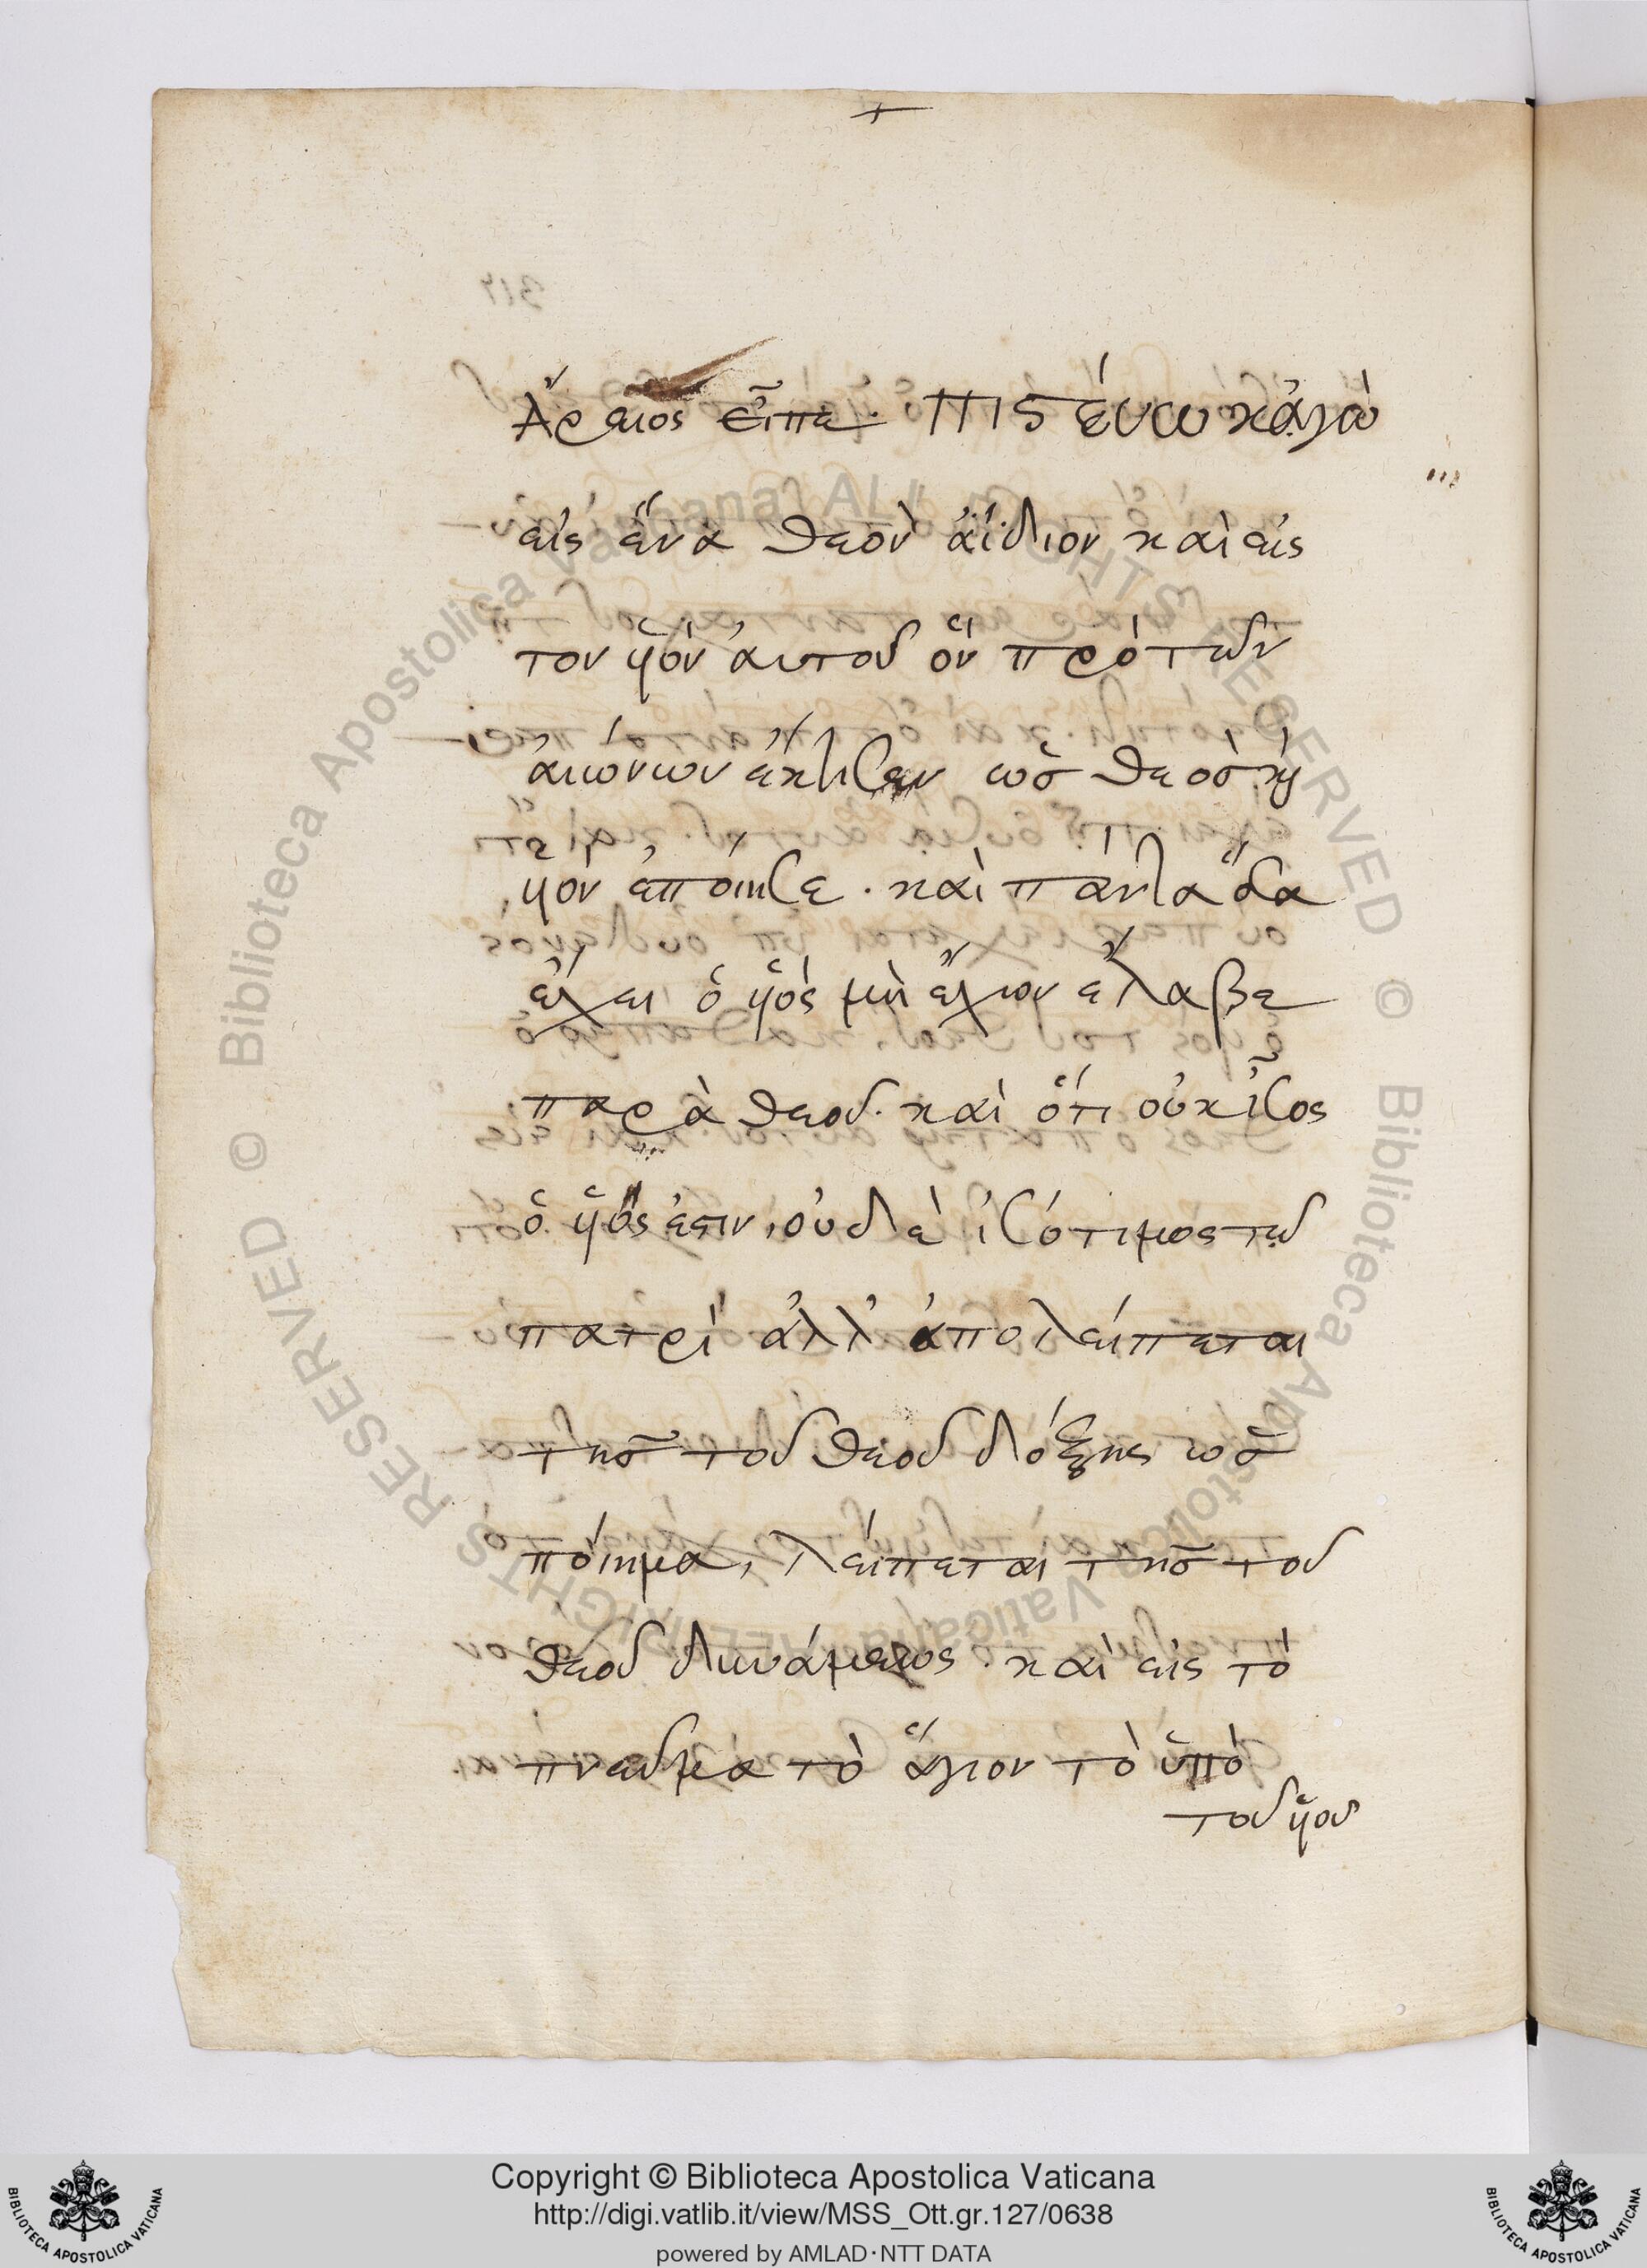 Ἄρειος εἶπε. Πιστεύω κἀγὼ
εἰς ἕνα θεὸν ἀΐδιον καὶ εἰς
τον υἱὸν αὐτοῦ ὃν πρὸ τῶν
αἰώνων ἔκτισεν ὡς θεὸς καὶ
υἱὸν ἐποίησε. καὶ πάντα ὅσα
ἔχει ὁ υἱὸς μὴ ἔχων ἔλαβε
παρὰ θεοῦ. καὶ ὅτι οὐκ ἶσος
ὁ υἱός ἐστιν, οὐδὲ ἰσότιμος τῶ
πατρὶ ἀλλ' ἀπολείπεται
τῆς τοῦ θεοῦ δόξης ὡς
ποίημα, λείπεται τῆς τοῦ
θεοῦ δυνάμεως. καὶ εἰς τὸ
πνεῦμα τὸ ἅγιον τὸ ὑπὸ
τοῦ υἱοῦ
Copyright © Biblioteca Apostolica Vaticana
http://digi.vatlib.it/view/MSS_Ott.gr.127/0638
powered by AMLAD·NTT DATA
BIBLIOTECA APOSTOLICA VATICANA
BIBLIOTECA APOSTOLICA VATICANA
© Biblioteca Apostolica Vaticana ALL RIGHTS RESERVED © Biblioteca Apostolica Vaticana ALL RIGHTS RESERVED